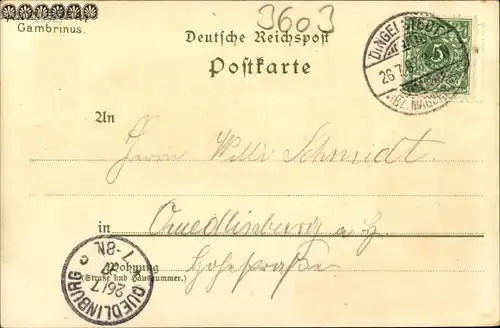 3603
Gambrinus.
Deutsche Reichspost
Postkarte
DINGELSTEDT
26 7
5
An
Herrn Willi Schmidt
in Quedlinburg a. H.
Wohnung
(Straße und Hausnummer.)
Hohestraße
QUEDLINBURG
26/7
97
7-8N.
c